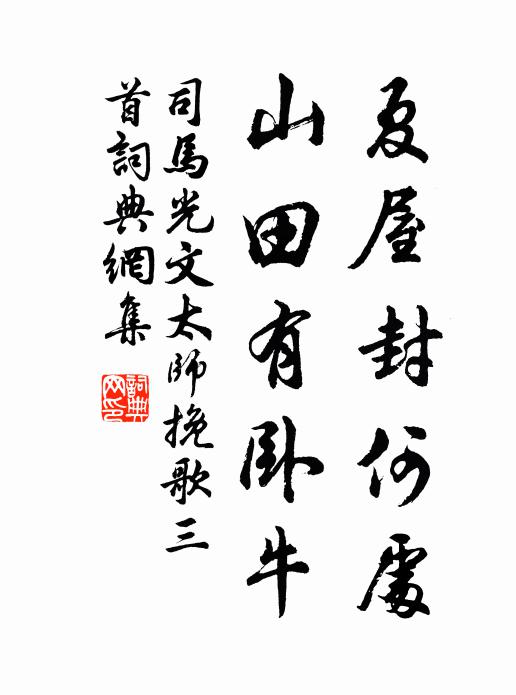 夏屋封何處
山田有臥牛
司馬光文太師挽歌三
首詞典網集
詞典
网印